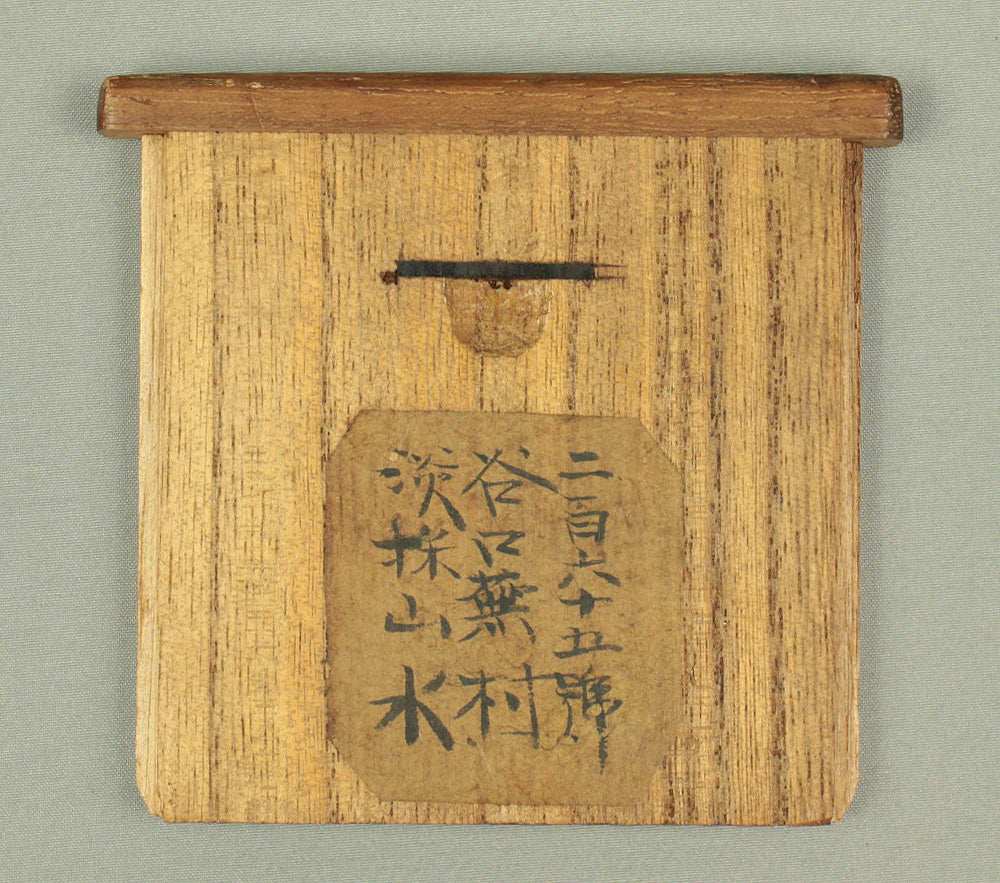 二百六十五號
谷口蕪村
淡採山水